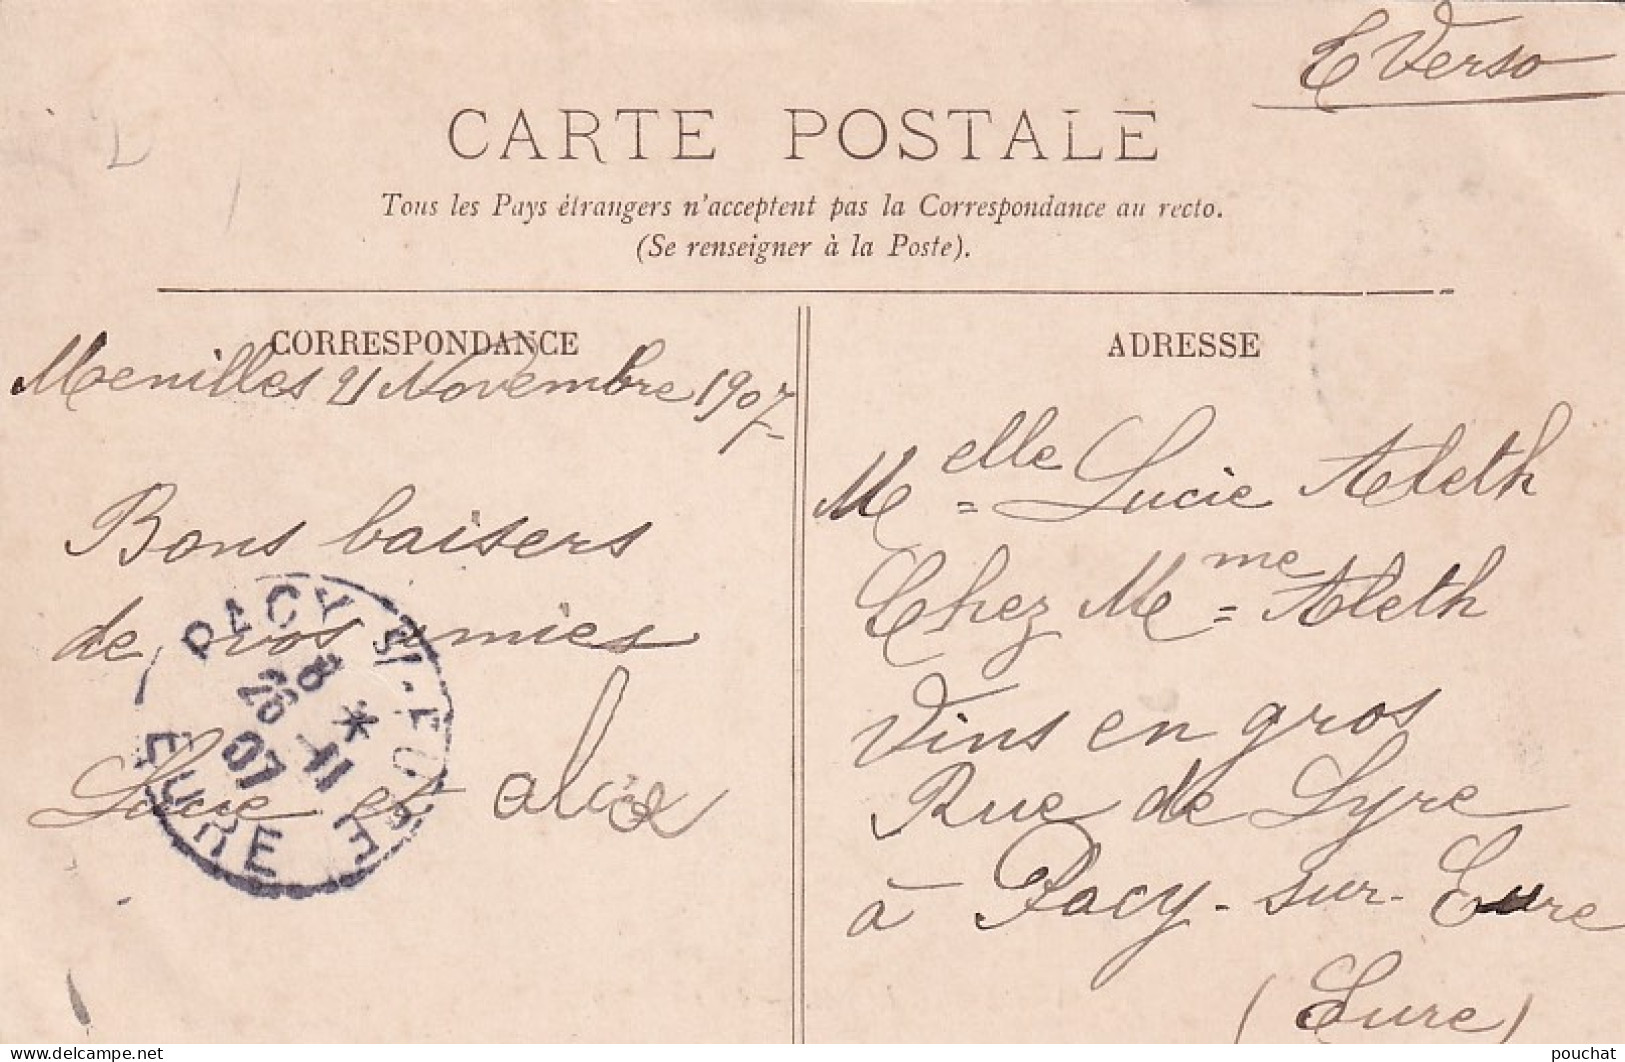 T Verso
CARTE POSTALE
Tous les Pays étrangers n'acceptent pas la Correspondance au recto.
(Se renseigner à la Poste).
CORRESPONDANCE
Menilles 21 Novembre 1907
Bons baisers
de vos amies
et alice
PACY-S/-EURE
8 *
26-11
07
EURE
ADRESSE
Melle Lucie Aleth
Chez Mme Aleth
Vins en gros
Rue de Lyre
à Pacy-sur-Eure
(Eure)
delcampe.net
pouchat